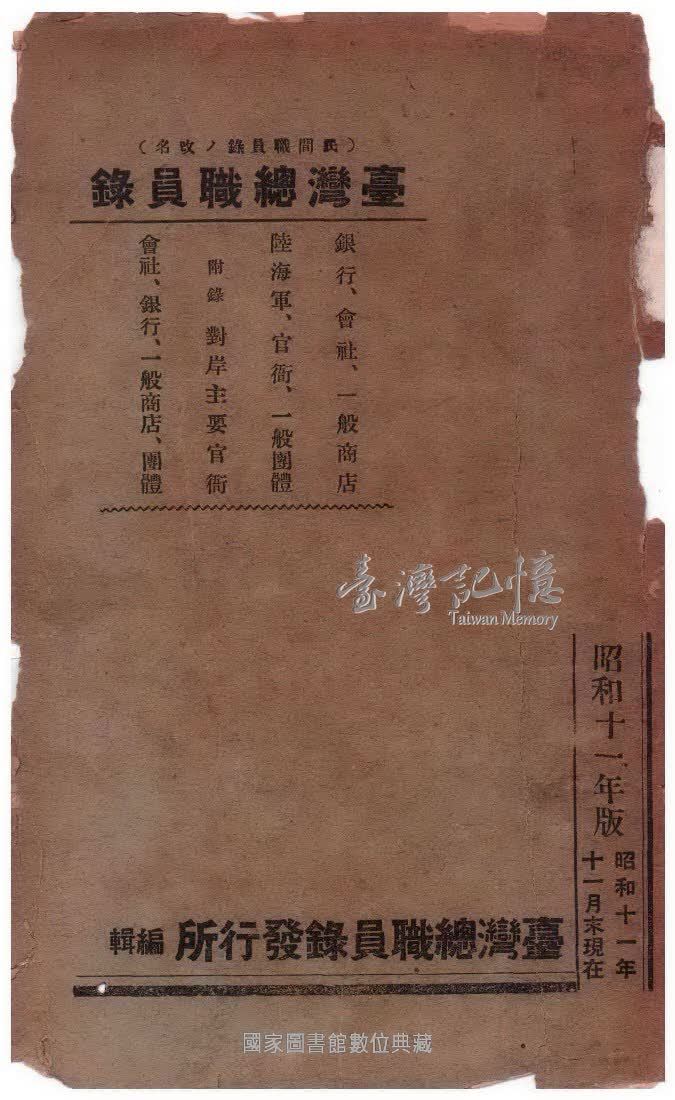 （民間職員錄ノ改名）
臺灣總職員錄
銀行、會社、一般商店
陸海軍、官衙、一般團體
附錄 對岸主要官衙
會社、銀行、一般商店、團體
臺灣記憶
Taiwan Memory
昭和十一年版
昭和十一年
十一月末現在
臺灣總職員錄發行所 編輯
國家圖書館數位典藏